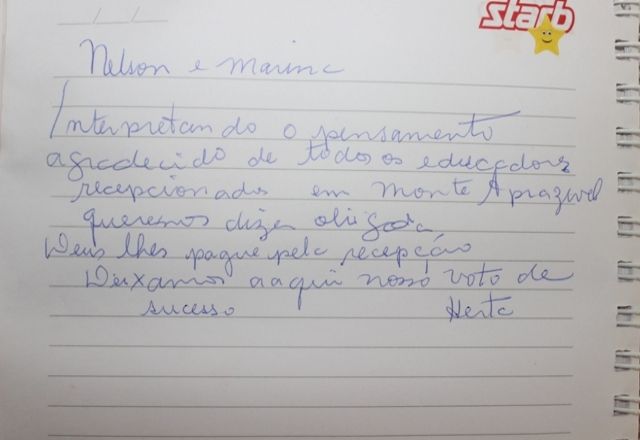 starb
Nelson e Marina
Interpretando o pensamento
agradecido de todos os educadores
recepcionados em Monte Aprazivel
queremos dizer obrigada
Deus lhes pague pela recepção
Deixamos aaqui nossó voto de
sucesso Herta